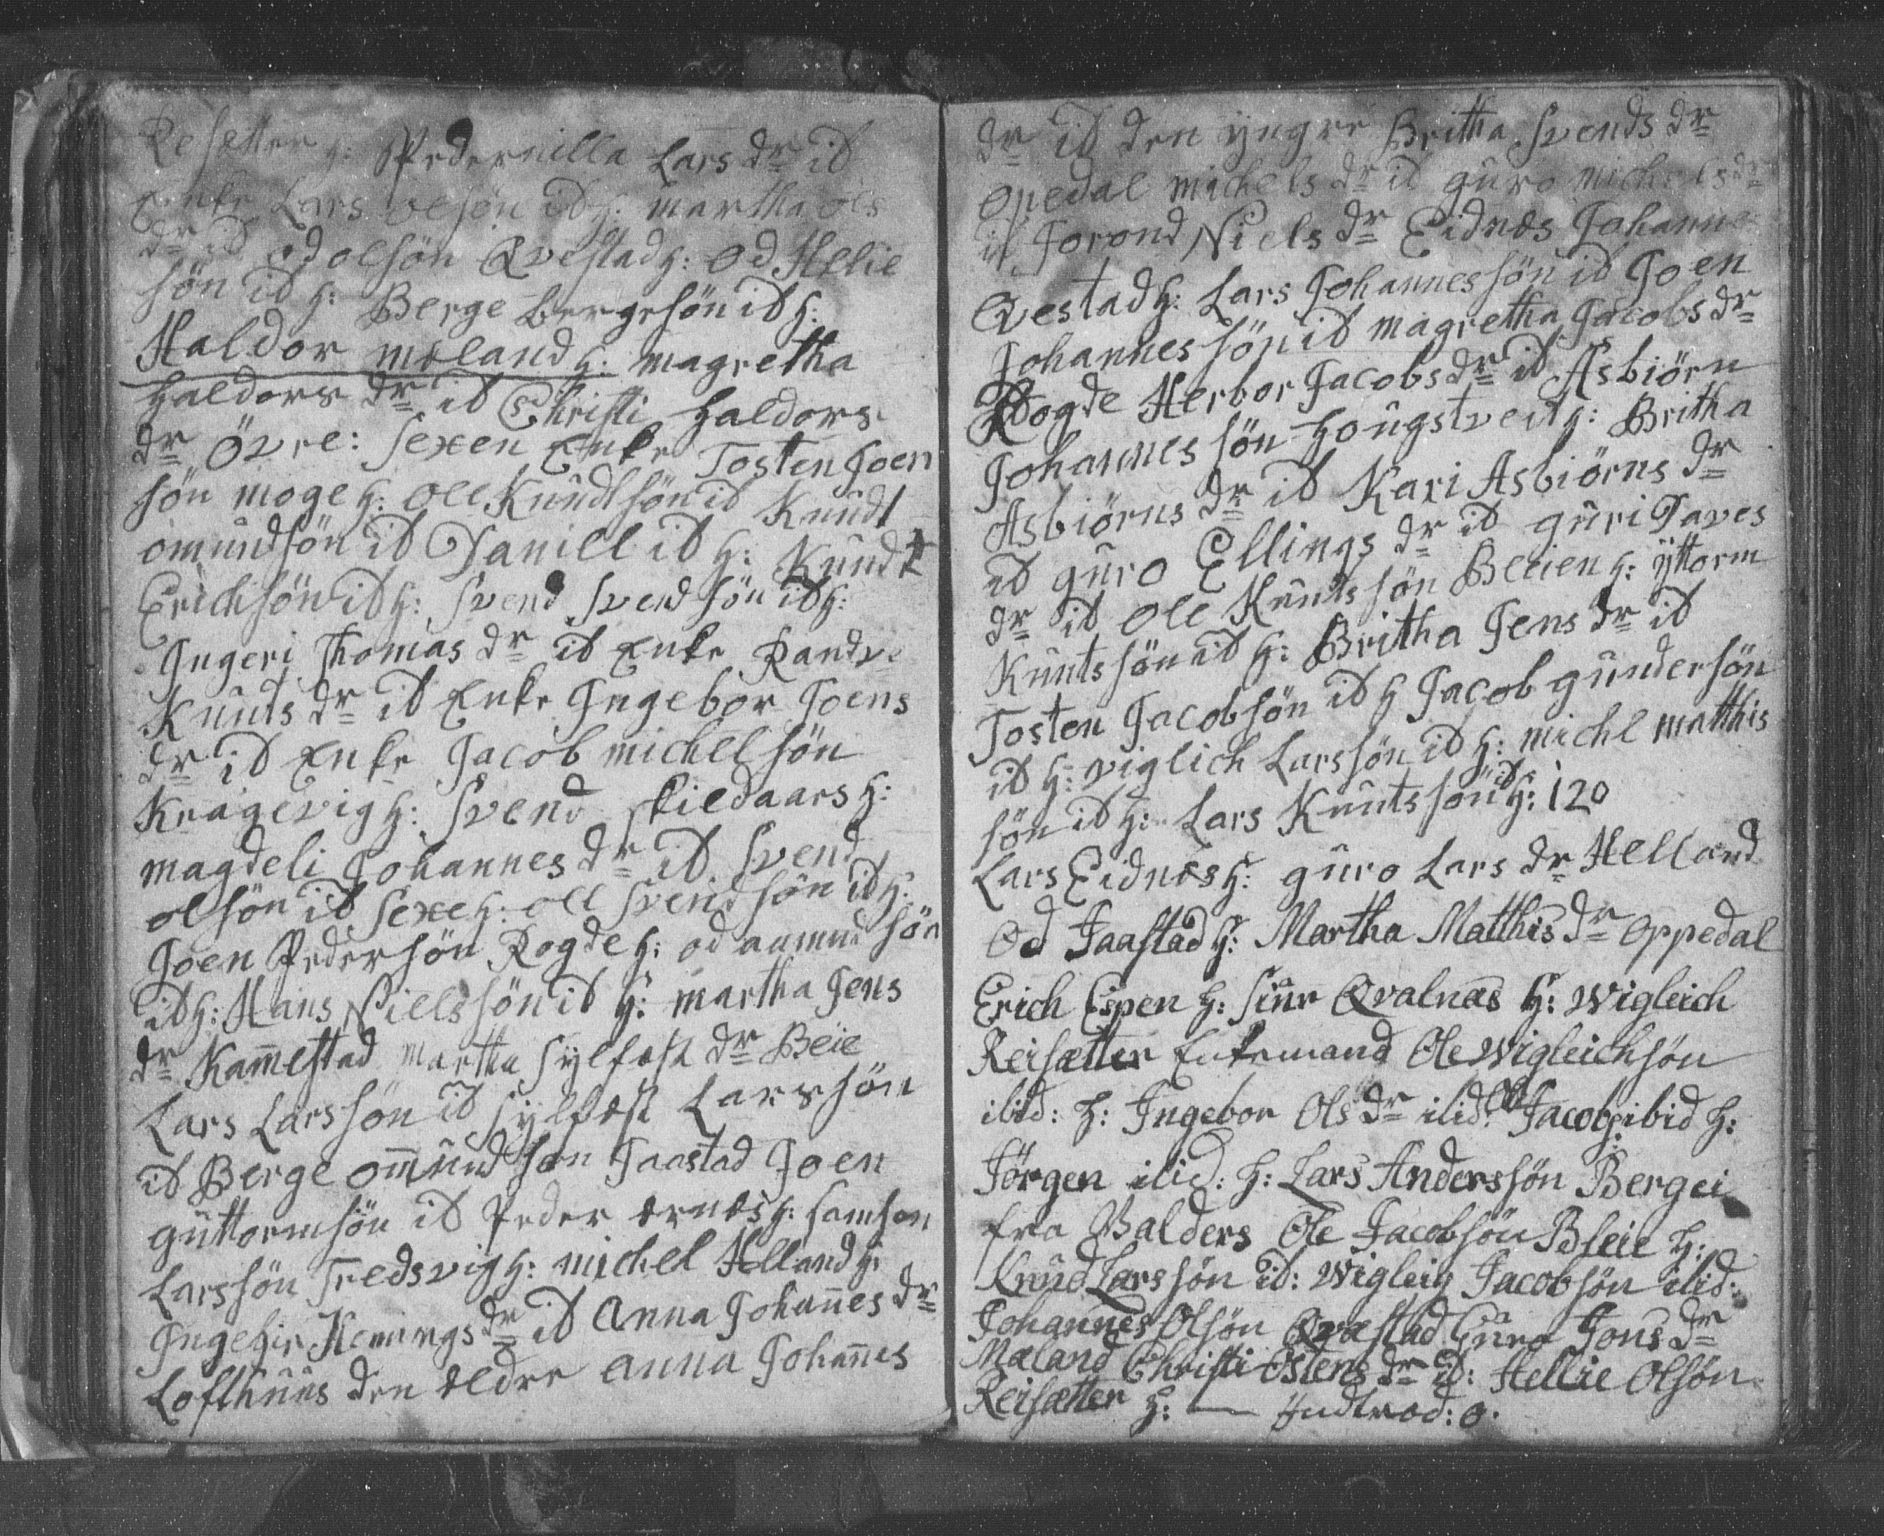 Resetter h: Pedernilla Lars dr id
Enke Lars olsøn id h: martha ols
dr id od olsøn Qvestad h: od Helie
søn id h: Berge bergesøn id h:
Haldor meland h: magretha
haldors dr id Christi haldors
dr övre: sexen Enke Tosten Joen
søn moge h: ole Knudtsøn id Knudt
omundsøn id Daniell id h: Knudt
Erichsøn id h: Svend Svendsøn id h:
Ingeri Thomas dr id Enke Randve
Knuds dr id Enke Ingebor Joens
dr id Enke Jacob michelsøn
Kragevig h: Svend skieldaars h:
magdeli Johannes dr id Svend
olsøn id sexe h: oll Svendsøn id h:
Joen Pedersøn Rogde h: od aamundsøn
id h: Hans Nielssøn id h: martha Jens
dr Kam̄estad martha Sylfest dr Beie
Lars Larssøn id Sylfest Larssøn
id Berge om̄undsøn Jaastad Joen
guttormsøn id Peder ernes h: samson
Larssøn Tredsvig h: michel Helland h:
Ingeher Hemings dr id Anna Johan̄es dr
Lofthuus den eldre anna Johan̄es
dr id den yngre Britha Svends dr
opedal michels dr id guro michels dr
id Jorond Niels dr Eidnes Johannes
Qvestad h: Lars Johannessøn id Joen
Johannessøn id magretha Jacobs dr
Rogde Herbor Jacobs dr id Asbiørn
Johannessøn hougstveit h: Britha
Asbiørns dr id Kari Asbiørns dr
id guro Ellings dr id guri Daves
dr id ole Knutssøn Bleien h: yttorm
Kuntssøn id h: Britha Jens dr id
Tosten Jacobsøn id h Jacob gundersøn
id h: viglich Larssøn id h: michl matthis
søn id h: Lars Knutssøn id h: 120
Lars Eidnes h: guro Lars dr Helland
Od Jaastad h: Martha Matthis dr Oppedal
Erich Espen h: siur Qvalnæs h: Wigleich
Reisætter Enkemand Ole Wigleichsøn
ibid: h: Ingebor Ols dr ibid: Jacob ibid h:
Jörgen ibid: h: Lars Anderssøn Bergei
fra Valders Ole Jacobsøn Bleie h:
Knud Larssøn id: Wigleig Jacobsøn ibid:
Johannes Olsøn Qvæstad Guro Jons dr
Mæland Christi Ostens dr id: Hellie Olsøn
Reisætter h: — Indtrod: 0.